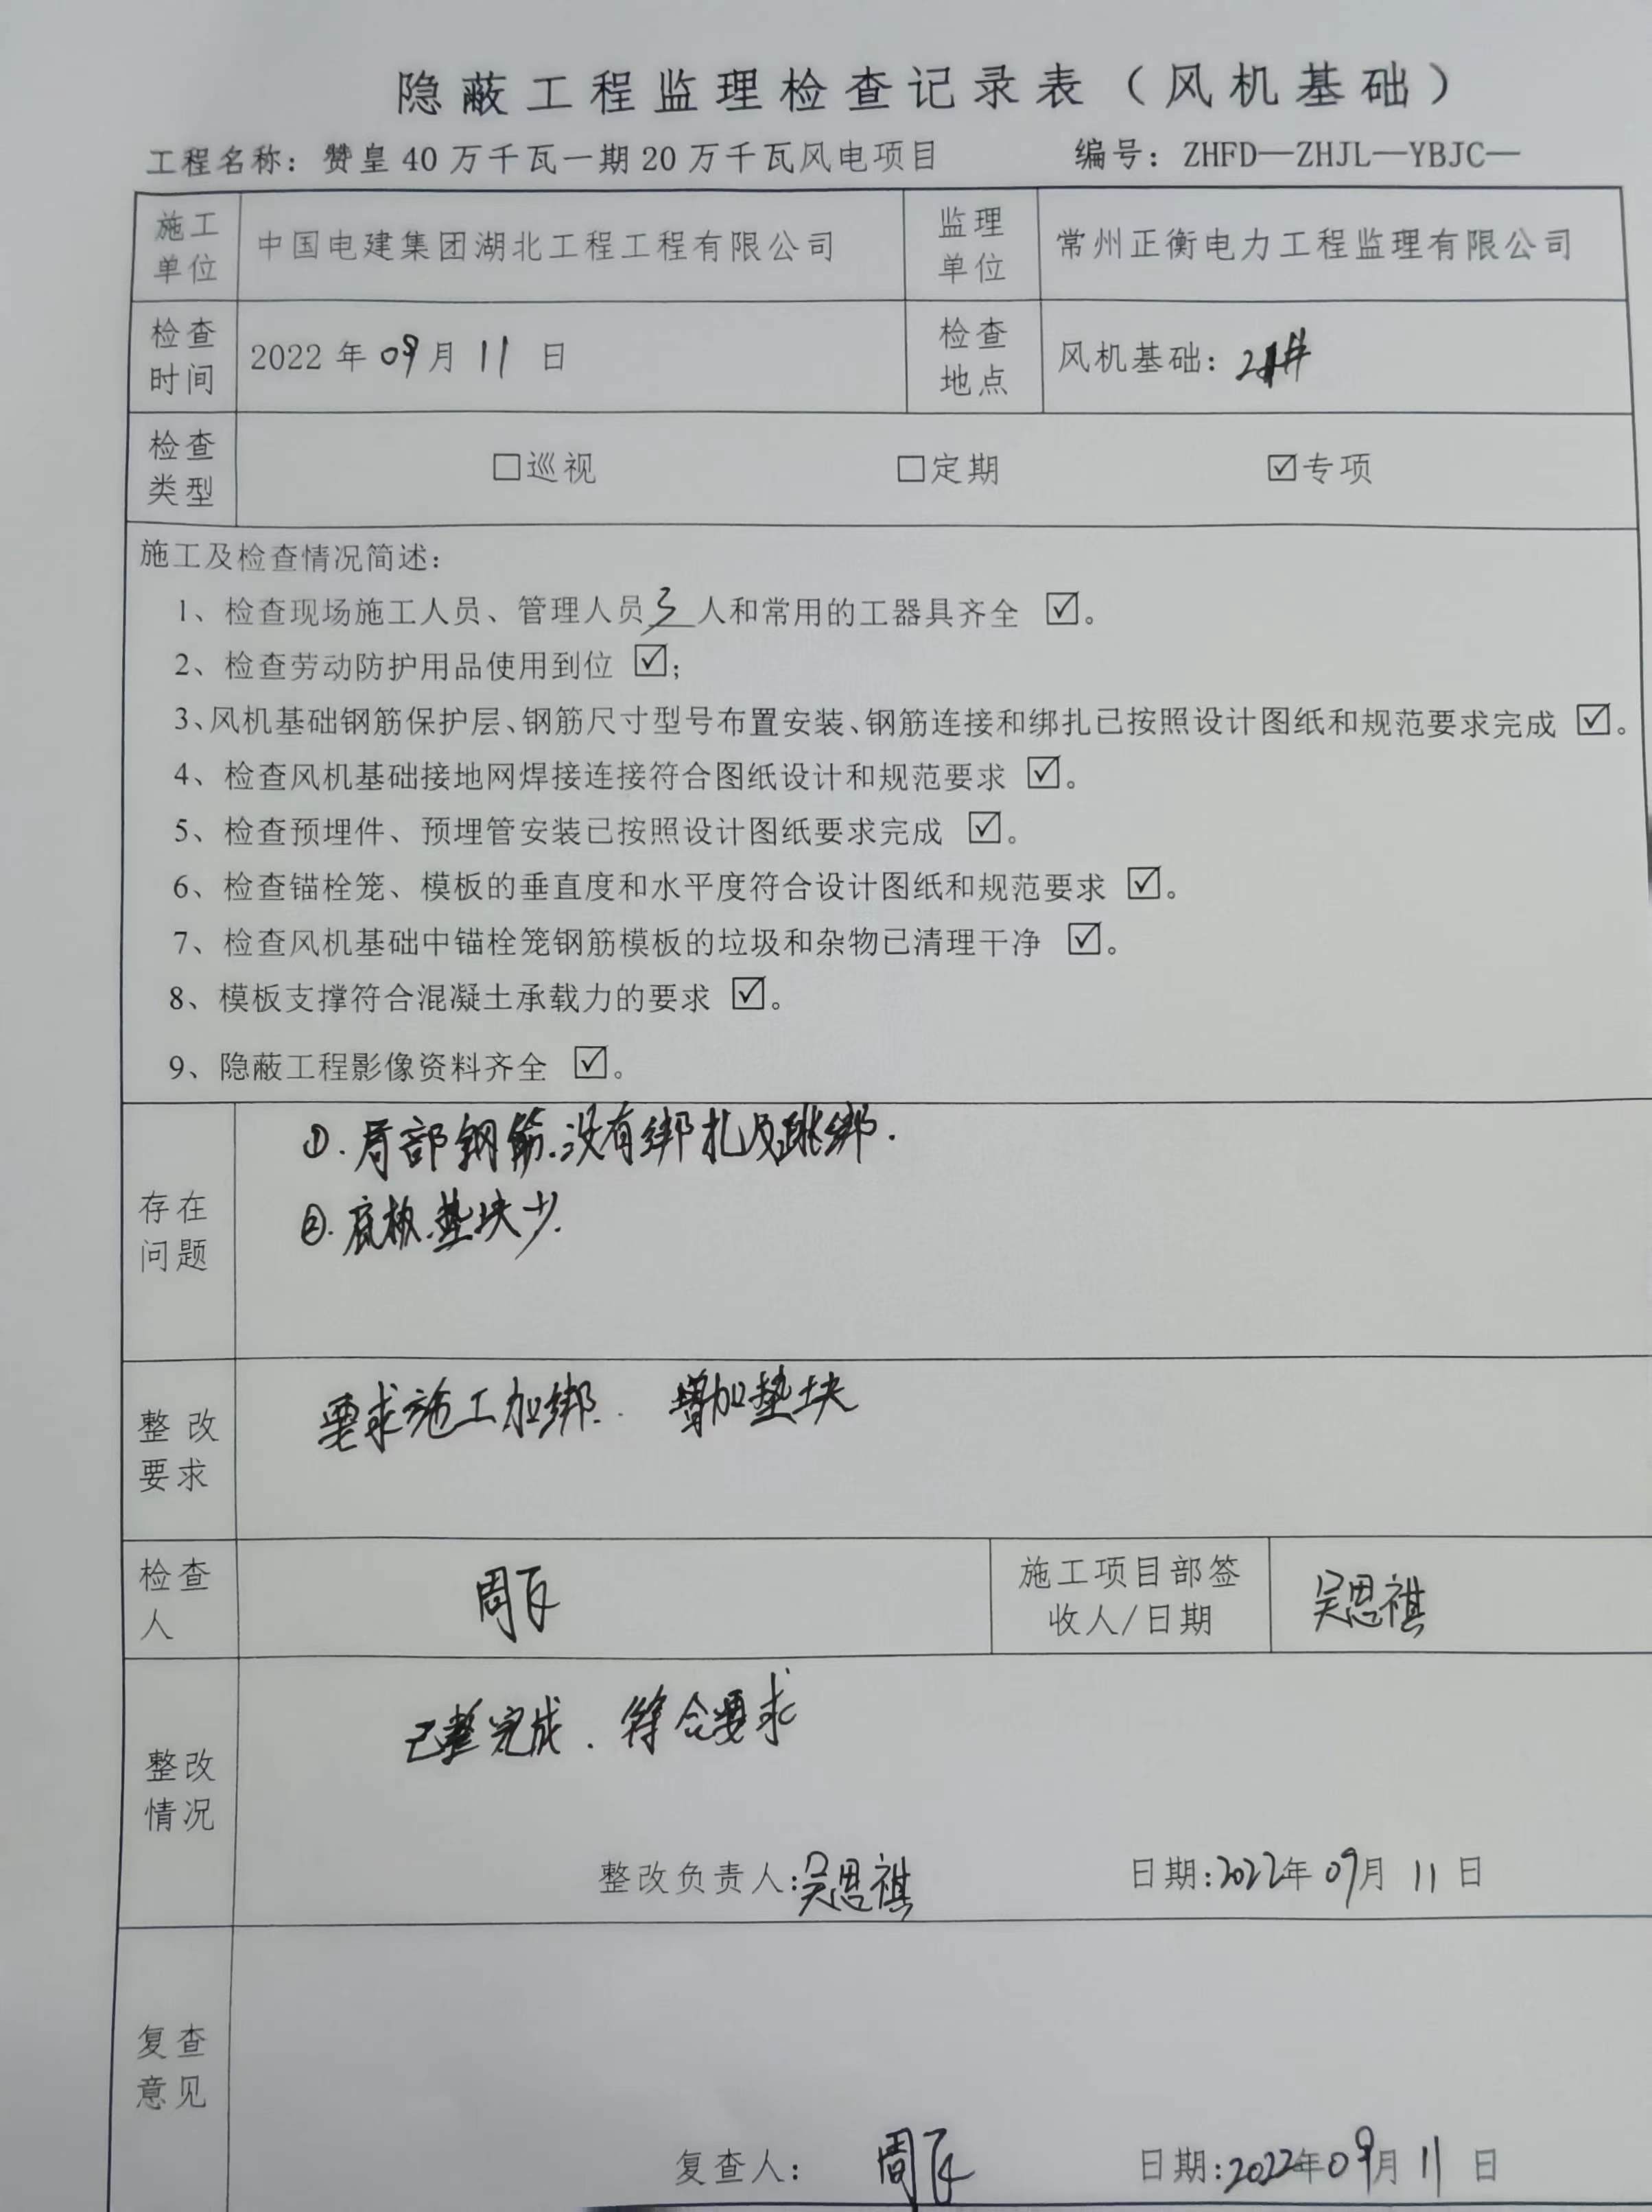 隐蔽工程监理检查记录表（风机基础）
工程名称：赞皇40万千瓦一期20万千瓦风电项目 编号：ZHFD—ZHJL—YBJC—
施工单位 中国电建集团湖北工程工程有限公司 监理单位 常州正衡电力工程监理有限公司
检查时间 2022年09月11日 检查地点 风机基础：21#
检查类型 □巡视 □定期 ☑专项
施工及检查情况简述：
1、检查现场施工人员、管理人员3人和常用的工器具齐全 ☑。
2、检查劳动防护用品使用到位 ☑；
3、风机基础钢筋保护层、钢筋尺寸型号布置安装、钢筋连接和绑扎已按照设计图纸和规范要求完成 ☑。
4、检查风机基础接地网焊接连接符合图纸设计和规范要求 ☑。
5、检查预埋件、预埋管安装已按照设计图纸要求完成 ☑。
6、检查锚栓笼、模板的垂直度和水平度符合设计图纸和规范要求 ☑。
7、检查风机基础中锚栓笼钢筋模板的垃圾和杂物已清理干净 ☑。
8、模板支撑符合混凝土承载力的要求 ☑。
9、隐蔽工程影像资料齐全 ☑。
存在问题
①.局部钢筋没有绑扎及跳绑.
②.底板垫块少.
整改要求 要求施工加绑. 增加垫块
检查人 周 施工项目部签收人/日期 吴思祺
整改情况 已整完成.符合要求
整改负责人：吴思祺 日期：2022年09月11日
复查意见
复查人： 周 日期：2022年09月11日